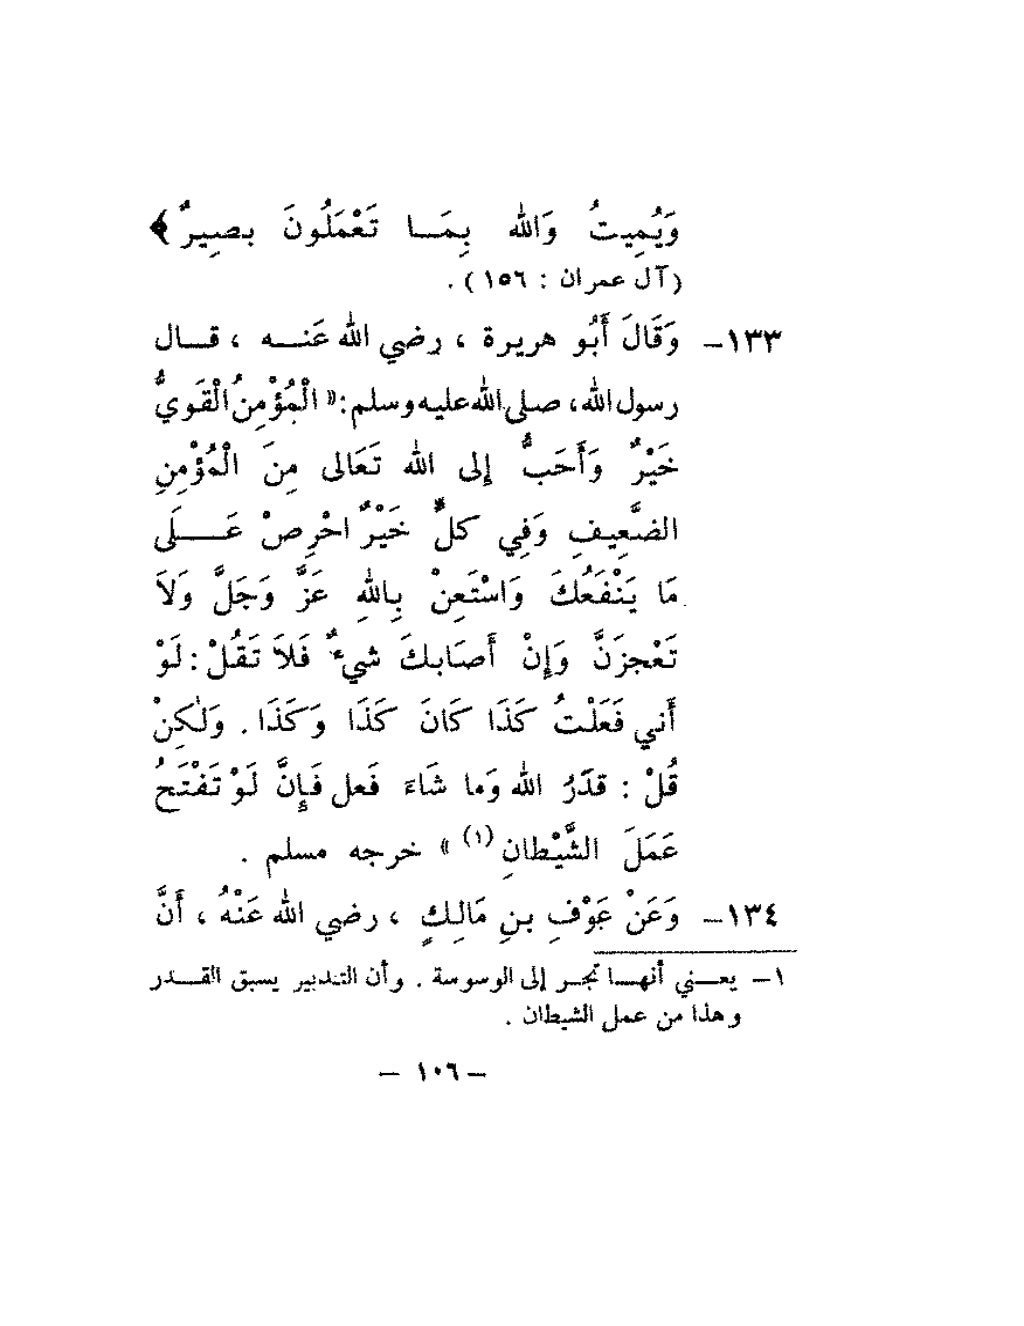 وَيُمِيتُ وَالله بِمَـا تَعْمَلُونَ بصِيرٌ ﴾
(آل عمران : ١٥٦) .
١٣٣ـ وَقَالَ أَبُو هريرة ، رضي الله عَنـه ، قـال
رسول الله، صلى الله عليه وسلم:« الْمُؤْمِنُ الْقَويُّ
خَيْرٌ وَأَحَبُّ إلى الله تَعَالى مِنَ الْمُؤْمِنِ
الضَّعِيفِ وَفِي كلٌّ خَيْرٌ احْرِصْ عَـلَى
مَا يَنْفَعُكَ وَاسْتَعِنْ بِاللهِ عَزَّ وَجَلَّ وَلاَ
تَعْجزَنَّ وَإِنْ أَصَابكَ شيءٌ فَلاَ تَقُلْ : لَوْ
أَني فَعَلْتُ كَذَا كَانَ كَذَا وَكَذَا . وَلٰكِنْ
قُلْ : قدّرُ الله وَما شَاءَ فَعل فَإِنَّ لَوْ تَفْتَحُ
عَمَلَ الشَّيْطانِ(١) » خرجه مسلم .
١٣٤ـ وَعَنْ عَوْفِ بنِ مَالِكٍ ، رضي الله عَنْهُ ، أَنَّ
١ـ يعـني أنهـا تجـر إلى الوسوسة . وأن التدبير يسبق القـدر
وهذا من عمل الشيطان .
ـ ١٠٦ ـ